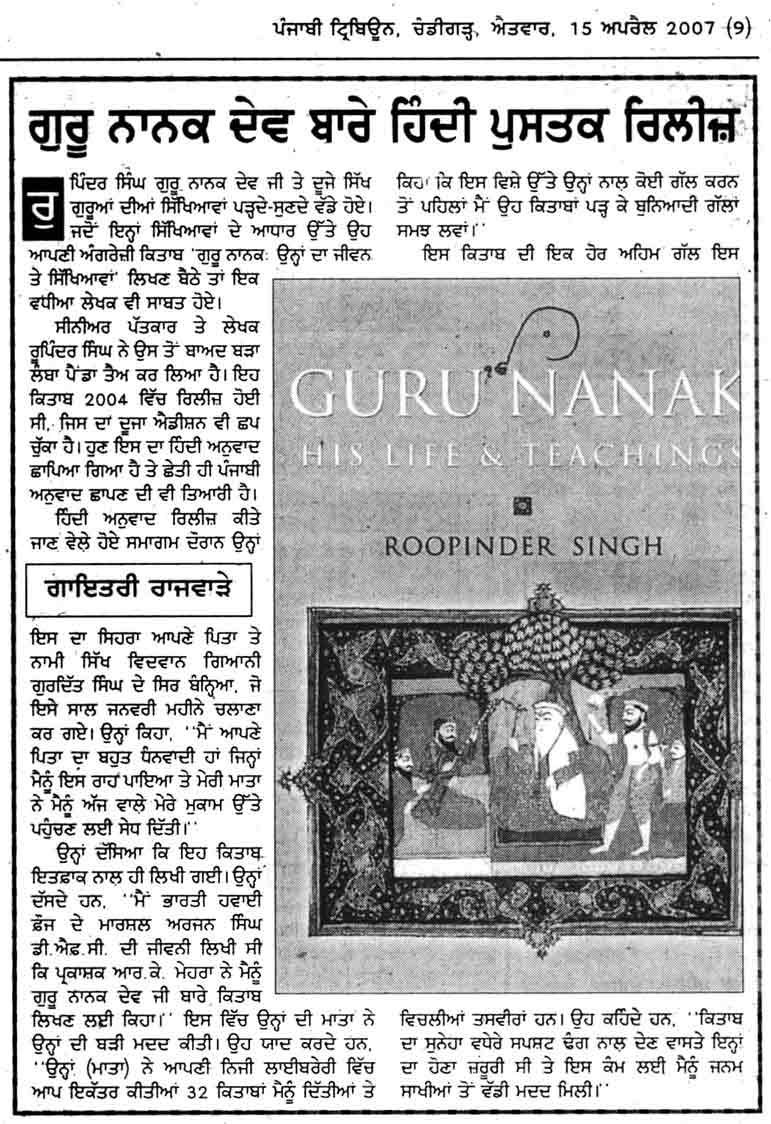 ਪੰਜਾਬੀ ਟ੍ਰਿਬਿਊਨ, ਚੰਡੀਗੜ੍ਹ, ਐਤਵਾਰ, 15 ਅਪਰੈਲ 2007 (9)
ਗੁਰੂ ਨਾਨਕ ਦੇਵ ਬਾਰੇ ਹਿੰਦੀ ਪੁਸਤਕ ਰਿਲੀਜ਼
ਰੁਪਿੰਦਰ ਸਿੰਘ ਗੁਰੂ ਨਾਨਕ ਦੇਵ ਜੀ ਤੇ ਦੂਜੇ ਸਿੱਖ
ਗੁਰੂਆਂ ਦੀਆਂ ਸਿੱਖਿਆਵਾਂ ਪੜ੍ਹਦੇ-ਸੁਣਦੇ ਵੱਡੇ ਹੋਏ।
ਜਦੋਂ ਇਨ੍ਹਾਂ ਸਿੱਖਿਆਵਾਂ ਦੇ ਆਧਾਰ ਉੱਤੇ ਉਹ
ਆਪਣੀ ਅੰਗਰੇਜ਼ੀ ਕਿਤਾਬ 'ਗੁਰੂ ਨਾਨਕ: ਉਨ੍ਹਾਂ ਦਾ ਜੀਵਨ
ਤੇ ਸਿੱਖਿਆਵਾਂ' ਲਿਖਣ ਬੈਠੇ ਤਾਂ ਇਕ
ਵਧੀਆ ਲੇਖਕ ਵੀ ਸਾਬਤ ਹੋਏ।
ਸੀਨੀਅਰ ਪੱਤਕਾਰ ਤੇ ਲੇਖਕ
ਰੂਪਿੰਦਰ ਸਿੰਘ ਨੇ ਉਸ ਤੋਂ ਬਾਅਦ ਬੜਾ
ਲੰਬਾ ਪੈਂਡਾ ਤੈਅ ਕਰ ਲਿਆ ਹੈ। ਇਹ
ਕਿਤਾਬ 2004 ਵਿੱਚ ਰਿਲੀਜ਼ ਹੋਈ
ਸੀ, ਜਿਸ ਦਾ ਦੂਜਾ ਐਡੀਸ਼ਨ ਵੀ ਛਪ
ਚੁੱਕਾ ਹੈ। ਹੁਣ ਇਸ ਦਾ ਹਿੰਦੀ ਅਨੁਵਾਦ
ਛਾਪਿਆ ਗਿਆ ਹੈ ਤੇ ਛੇਤੀ ਹੀ ਪੰਜਾਬੀ
ਅਨੁਵਾਦ ਛਾਪਣ ਦੀ ਵੀ ਤਿਆਰੀ ਹੈ।
ਹਿੰਦੀ ਅਨੁਵਾਦ ਰਿਲੀਜ਼ ਕੀਤੇ
ਜਾਣ ਵੇਲੇ ਹੋਏ ਸਮਾਗਮ ਦੌਰਾਨ ਉਨ੍ਹਾਂ
ਗਾਇਤਰੀ ਰਾਜਵਾੜੇ
ਇਸ ਦਾ ਸਿਹਰਾ ਆਪਣੇ ਪਿਤਾ ਤੇ
ਨਾਮੀ ਸਿੱਖ ਵਿਦਵਾਨ ਗਿਆਨੀ
ਗੁਰਦਿੱਤ ਸਿੰਘ ਦੇ ਸਿਰ ਬੰਨ੍ਹਿਆ, ਜੋ
ਇਸੇ ਸਾਲ ਜਨਵਰੀ ਮਹੀਨੇ ਚਲਾਣਾ
ਕਰ ਗਏ। ਉਨ੍ਹਾਂ ਕਿਹਾ, ''ਮੈਂ ਆਪਣੇ
ਪਿਤਾ ਦਾ ਬਹੁਤ ਧੰਨਵਾਦੀ ਹਾਂ ਜਿਨ੍ਹਾਂ
ਮੈਨੂੰ ਇਸ ਰਾਹ ਪਾਇਆ ਤੇ ਮੇਰੀ ਮਾਤਾ
ਨੇ ਮੈਨੂੰ ਅੱਜ ਵਾਲੇ ਮੇਰੇ ਮੁਕਾਮ ਉੱਤੇ
ਪਹੁੰਚਣ ਲਈ ਸੇਧ ਦਿੱਤੀ।''
ਉਨ੍ਹਾਂ ਦੱਸਿਆ ਕਿ ਇਹ ਕਿਤਾਬ
ਇਤਫ਼ਾਕ ਨਾਲ ਹੀ ਲਿਖੀ ਗਈ। ਉਨ੍ਹਾਂ
ਦੱਸਦੇ ਹਨ, ''ਮੈਂ ਭਾਰਤੀ ਹਵਾਈ
ਫ਼ੌਜ ਦੇ ਮਾਰਸ਼ਲ ਅਰਜਨ ਸਿੰਘ
ਡੀ.ਐਫ਼.ਸੀ. ਦੀ ਜੀਵਨੀ ਲਿਖੀ ਸੀ
ਕਿ ਪ੍ਰਕਾਸ਼ਕ ਆਰ.ਕੇ. ਮੇਹਰਾ ਨੇ ਮੈਨੂੰ
ਗੁਰੂ ਨਾਨਕ ਦੇਵ ਜੀ ਬਾਰੇ ਕਿਤਾਬ
ਲਿਖਣ ਲਈ ਕਿਹਾ।'' ਇਸ ਵਿੱਚ ਉਨ੍ਹਾਂ ਦੀ ਮਾਤਾ ਨੇ
ਉਨ੍ਹਾਂ ਦੀ ਬੜੀ ਮਦਦ ਕੀਤੀ। ਉਹ ਯਾਦ ਕਰਦੇ ਹਨ,
''ਉਨ੍ਹਾਂ (ਮਾਤਾ) ਨੇ ਆਪਣੀ ਨਿਜੀ ਲਾਈਬਰੇਰੀ ਵਿੱਚ
ਆਪ ਇਕੱਤਰ ਕੀਤੀਆਂ 32 ਕਿਤਾਬਾਂ ਮੈਨੂੰ ਦਿੱਤੀਆਂ ਤੇ
ਕਿਹਾ ਕਿ ਇਸ ਵਿਸ਼ੇ ਉੱਤੇ ਉਨ੍ਹਾਂ ਨਾਲ ਕੋਈ ਗੱਲ ਕਰਨ
ਤੋਂ ਪਹਿਲਾਂ ਮੈਂ ਉਹ ਕਿਤਾਬਾਂ ਪੜ੍ਹ ਕੇ ਬੁਨਿਆਦੀ ਗੱਲਾਂ
ਸਮਝ ਲਵਾਂ।''
ਇਸ ਕਿਤਾਬ ਦੀ ਇਕ ਹੋਰ ਅਹਿਮ ਗੱਲ ਇਸ
ੴ
GURU NANAK
HIS LIFE & TEACHINGS
ROOPINDER SINGH
ਵਿਚਲੀਆਂ ਤਸਵੀਰਾਂ ਹਨ। ਉਹ ਕਹਿੰਦੇ ਹਨ, ''ਕਿਤਾਬ
ਦਾ ਸੁਨੇਹਾ ਵਧੇਰੇ ਸਪਸ਼ਟ ਢੰਗ ਨਾਲ ਦੇਣ ਵਾਸਤੇ ਇਨ੍ਹਾਂ
ਦਾ ਹੋਣਾ ਜ਼ਰੂਰੀ ਸੀ ਤੇ ਇਸ ਕੰਮ ਲਈ ਮੈਨੂੰ ਜਨਮ
ਸਾਖੀਆਂ ਤੋਂ ਵੱਡੀ ਮਦਦ ਮਿਲੀ।''